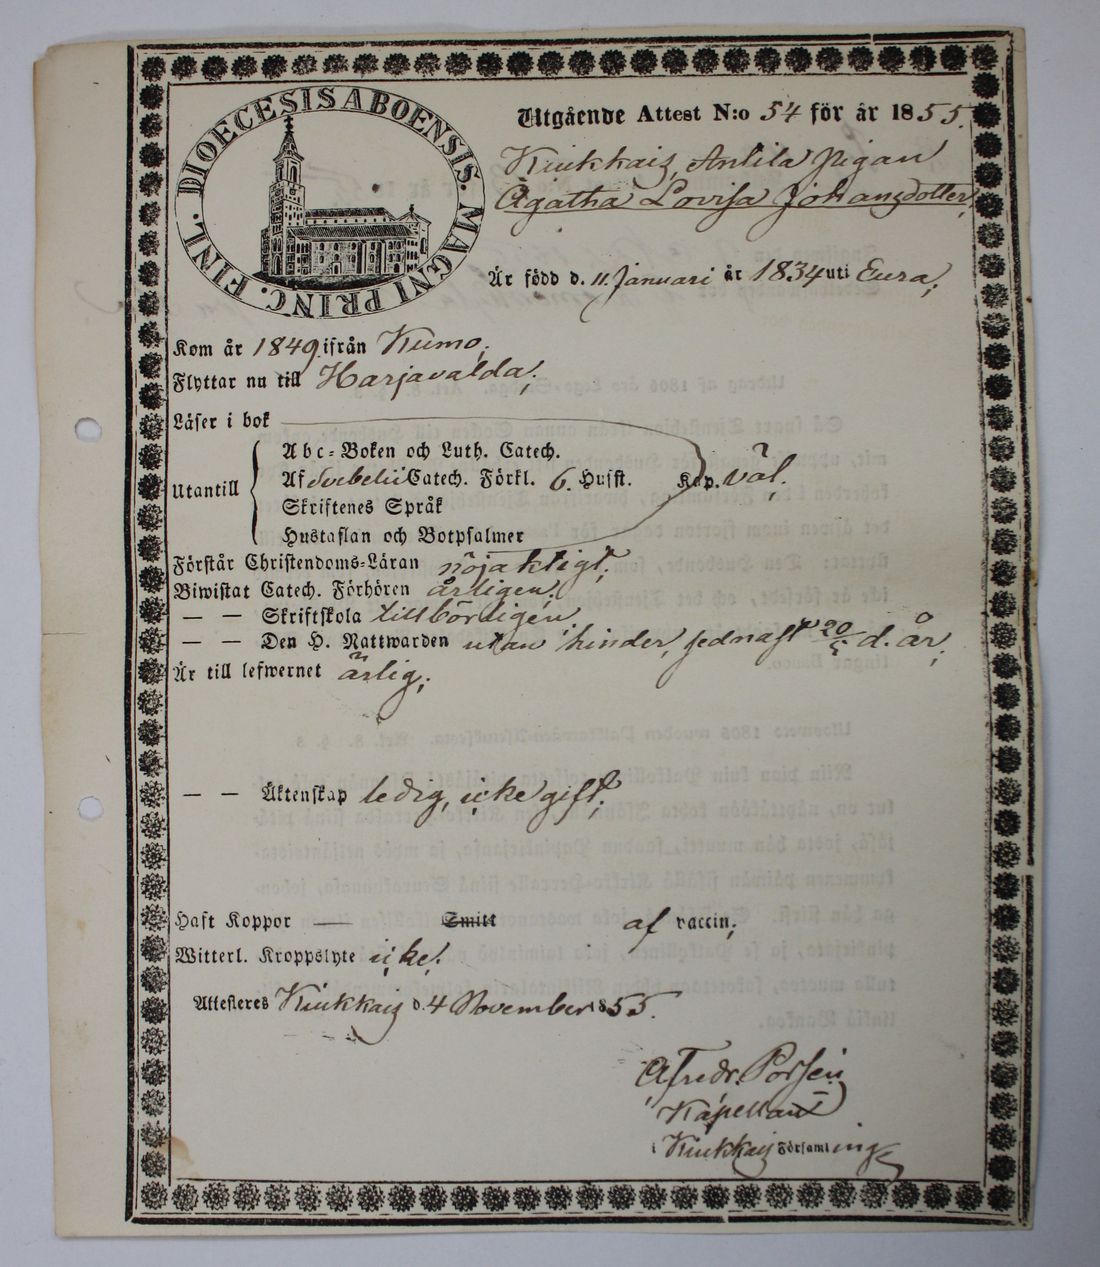 DIOECESIS ABOENSIS. MAGNI PRINC. FINL.
Utgående Attest N:o 54 för år 1855.
Kiukkais, Anttila pigan
Agatha Lovisa Johansdotter,
Är född d. 11 Januari år 1834 uti Eura,
Kom år 1849 ifrån Kumo,
Flyttar nu till Harjavalda,
Läser i bok
Utantill
Abc-Boken och Luth. Catech.
Af Svebelii Catech. Förkl. 6. Hufst. Kap. väl,
Skriftenes Språk
Hustaflan och Botpsalmer
Förstår Christendoms-Läran nöjaktigt,
Biwistat Catech. Förhören årligen,
— — Skriftskola tillbörligen,
— — Den H. Nattwarden utan hinder, sednast 20/5 d. år,
Är till lefwernet ärlig,
— — Äktenskap ledig, icke gift,
Haft Koppor — Smitt af vaccin,
Witterl. Kroppslyte icke,
Attesteres Kiukkais d. 4 November 1855.
Alfredr. Porsén
Kapellan
i Kiukkais Församling